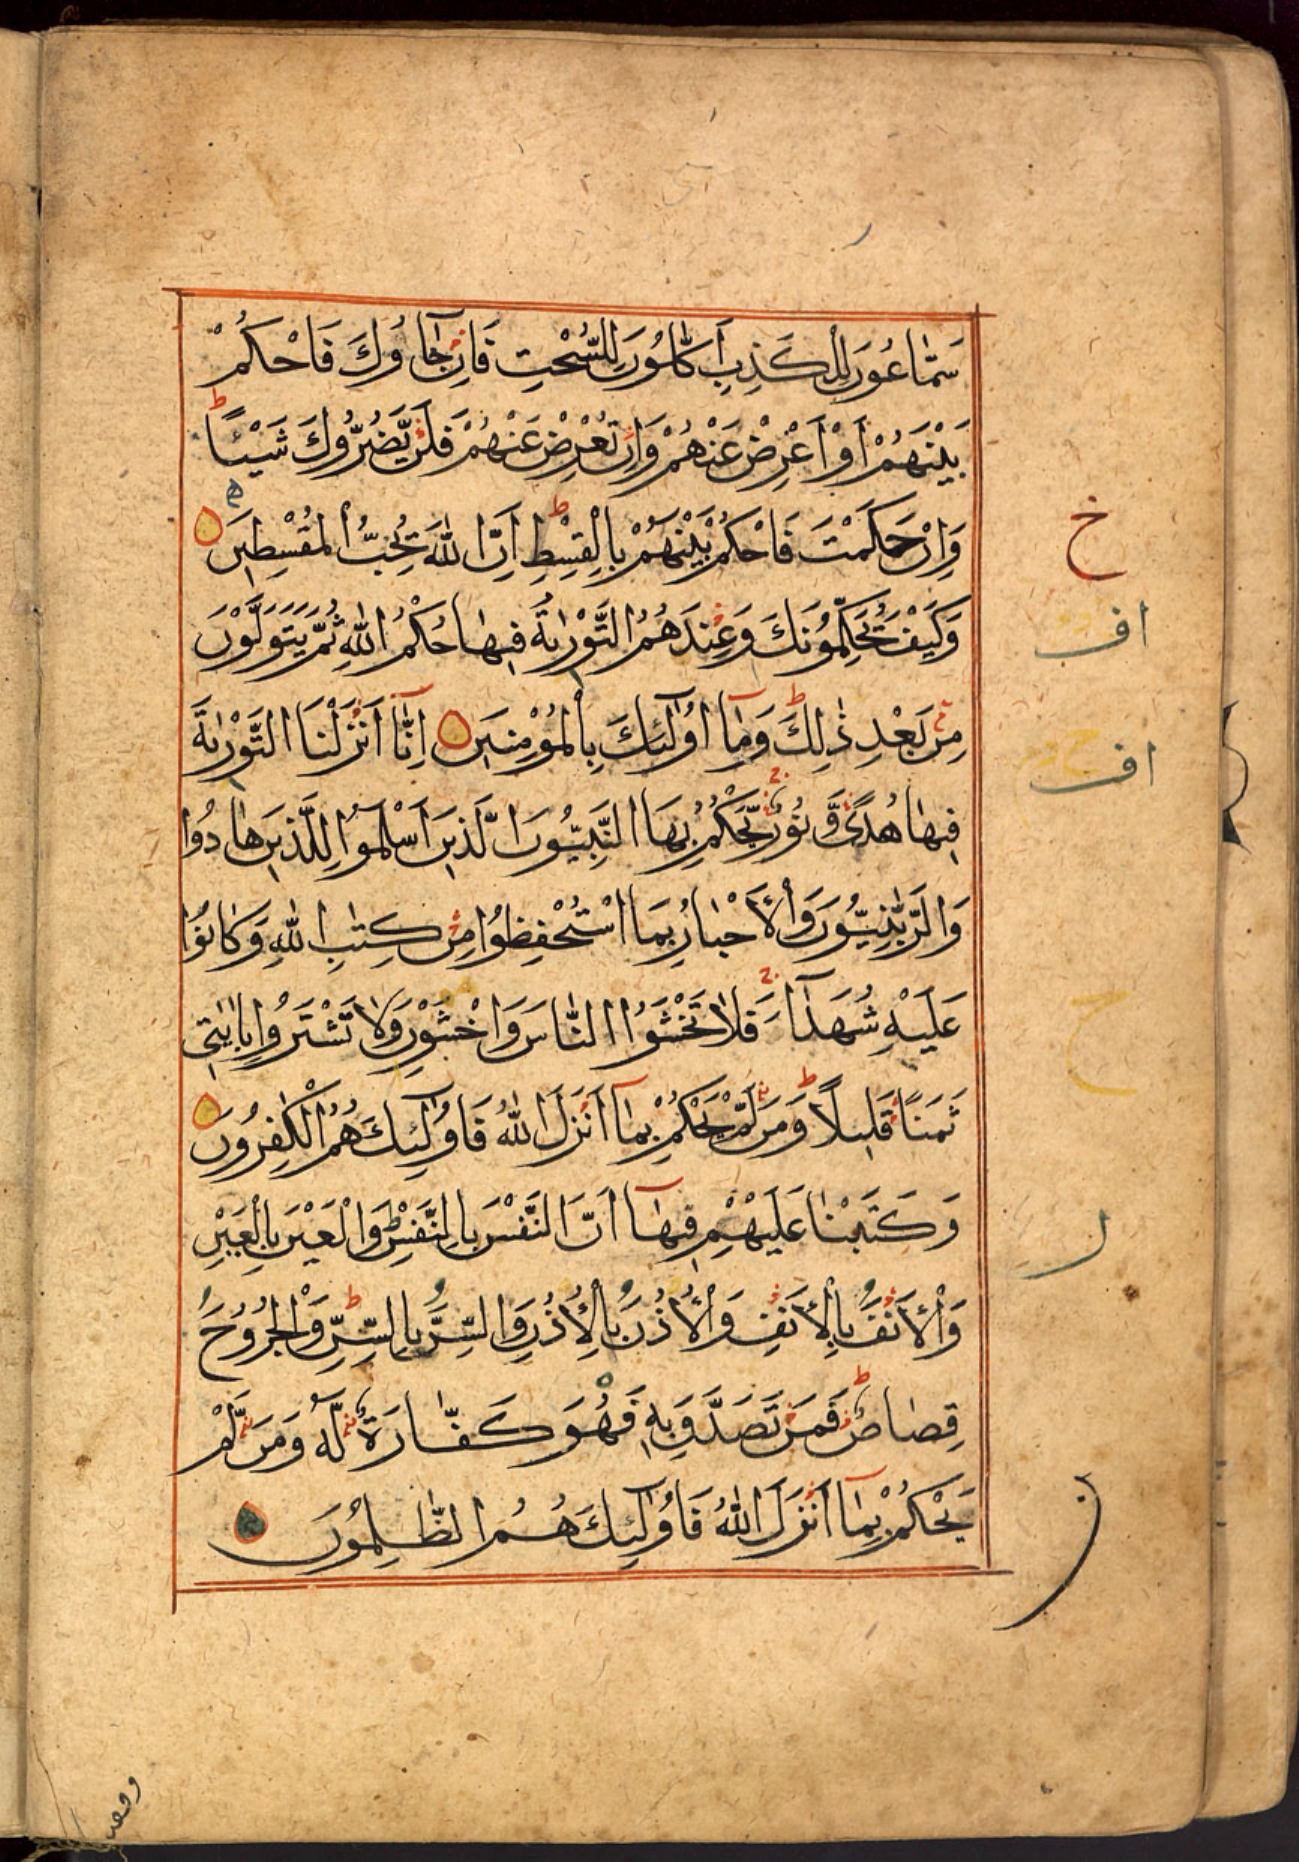 سَمَّاعُونَ لِلْكَذِبِ أَكَّالُونَ لِلسُّحْتِ فَإِن جَآءُوكَ فَاحْكُمْ
بَيْنَهُمْ أَوْ أَعْرِضْ عَنْهُمْ وَإِن تُعْرِضْ عَنْهُمْ فَلَن يَّضُرُّوكَ شَيْـًٔا ط
وَإِنْ حَكَمْتَ فَاحْكُم بَيْنَهُمْ بِالْقِسْطِ ط إِنَّ اللهَ يُحِبُّ الْمُقْسِطِينَ
وَكَيْفَ يُحَكِّمُونَكَ وَعِندَهُمُ التَّوْرٰىةُ فِيهَا حُكْمُ اللهِ ثُمَّ يَتَوَلَّوْنَ
مِن بَعْدِ ذٰلِكَ ط وَمَآ أُولٰٓئِكَ بِالْمُؤْمِنِينَ إِنَّآ أَنزَلْنَا التَّوْرٰىةَ
فِيهَا هُدًى وَّنُورٌ ج يَّحْكُمُ بِهَا النَّبِيُّونَ الَّذِينَ أَسْلَمُوا لِلَّذِينَ هَادُوا
وَالرَّبّٰنِيُّونَ وَالْأَحْبَارُ بِمَا اسْتُحْفِظُوا مِن كِتٰبِ اللهِ وَكَانُوا
عَلَيْهِ شُهَدَآءَ ج فَلَا تَخْشَوُا النَّاسَ وَاخْشَوْنِ وَلَا تَشْتَرُوا بِاٰيٰتِي
ثَمَنًا قَلِيلًا ط وَمَن لَّمْ يَحْكُمْ بِمَآ أَنزَلَ اللهُ فَأُولٰٓئِكَ هُمُ الْكٰفِرُونَ
وَكَتَبْنَا عَلَيْهِمْ فِيهَآ أَنَّ النَّفْسَ بِالنَّفْسِ وَالْعَيْنَ بِالْعَيْنِ
وَالْأَنفَ بِالْأَنفِ وَالْأُذُنَ بِالْأُذُنِ وَالسِّنَّ بِالسِّنِّ ط وَالْجُرُوحَ
قِصَاصٌ ط فَمَن تَصَدَّقَ بِهِ فَهُوَ كَفَّارَةٌ لَّهُ وَمَن لَّمْ
يَحْكُمْ بِمَآ أَنزَلَ اللهُ فَأُولٰٓئِكَ هُمُ الظّٰلِمُونَ
خ
اف
اف
ح
ر